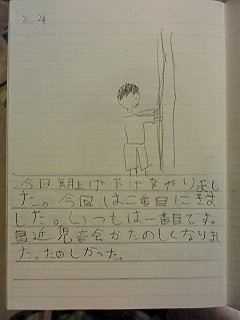 2. 24
今日旗上げ下げをやりまし
た。今回は二番目にきま
した。いつもは一番目です。
最近児童会がたのしくなりまし
た。たのしかった。